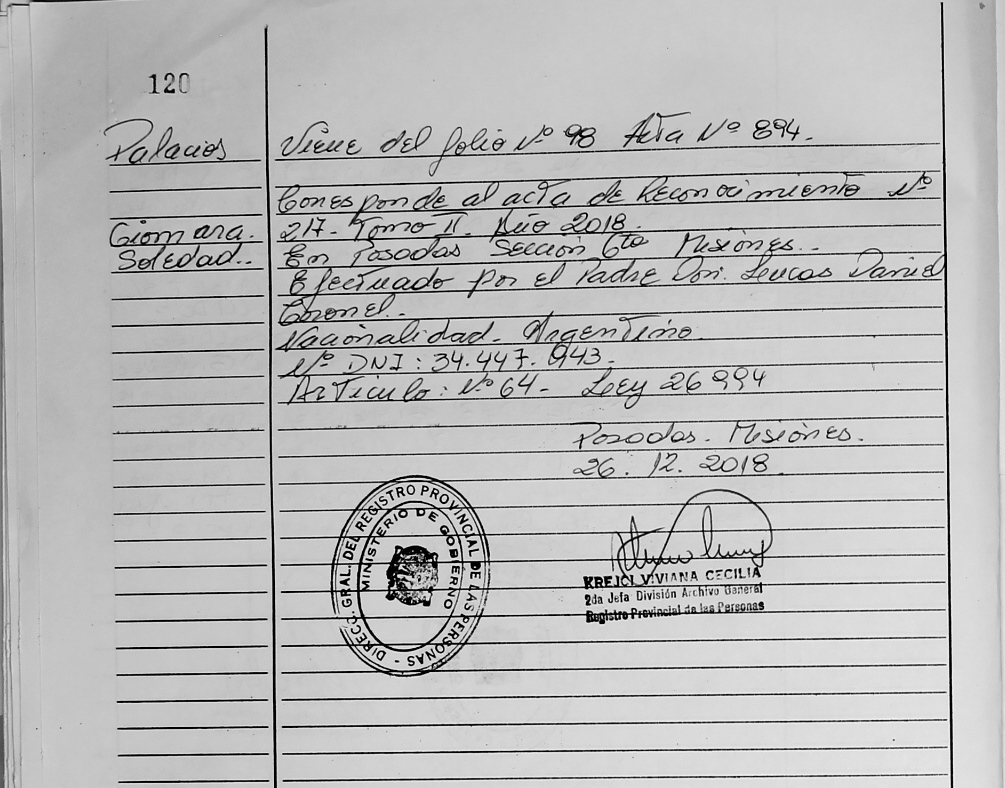 120
Palacios
Viene del folio Nº 98 Acta Nº 894.
Corresponde al acta de Reconocimiento Nº
Giomara.
217- Tomo II. Año 2018.
Soledad..
En Posadas Sección 6ta Misiones..
Efectuado por el Padre Don. Lucas Daniel
Coronel..
Nacionalidad. Argentino.
Nº DNI: 34.447.943.
Articulo: Nº 64- Ley 26994
Posadas. Misiones.
26. 12. 2018.
DIRECC. GRAL. DEL REGISTRO PROVINCIAL DE LAS PERSONAS -
MINISTERIO DE GOBIERNO
KREJCI VIVIANA CECILIA
2da Jefa División Archivo General
Registro Provincial de las Personas